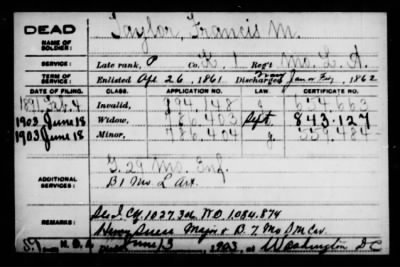 DEAD
NAME OF SOLDIER: Taylor, Francis M.
SERVICE: Late rank, P Co. K, 1 Reg't Mo. L. A.
TERM OF SERVICE: Enlisted Apr 26, 1861 Discharged Jan or Feby, 1862
DATE OF FILING. CLASS. APPLICATION NO. LAW. CERTIFICATE NO.
1891 Feb. 4 Invalid, 994.148 654.663
1903 June 18 Widow, 786.403 Sept. 843.127
1903 June 18 Minor, 786.404 g. 559.484
ADDITIONAL SERVICES: G. 29 Mo. Inf.
B 1 Mo L Art.
REMARKS: 1027.306 W.O. 1.084.874
Major & B. 7. Mo S M Cav.
June 13, 1903, at Washington D C